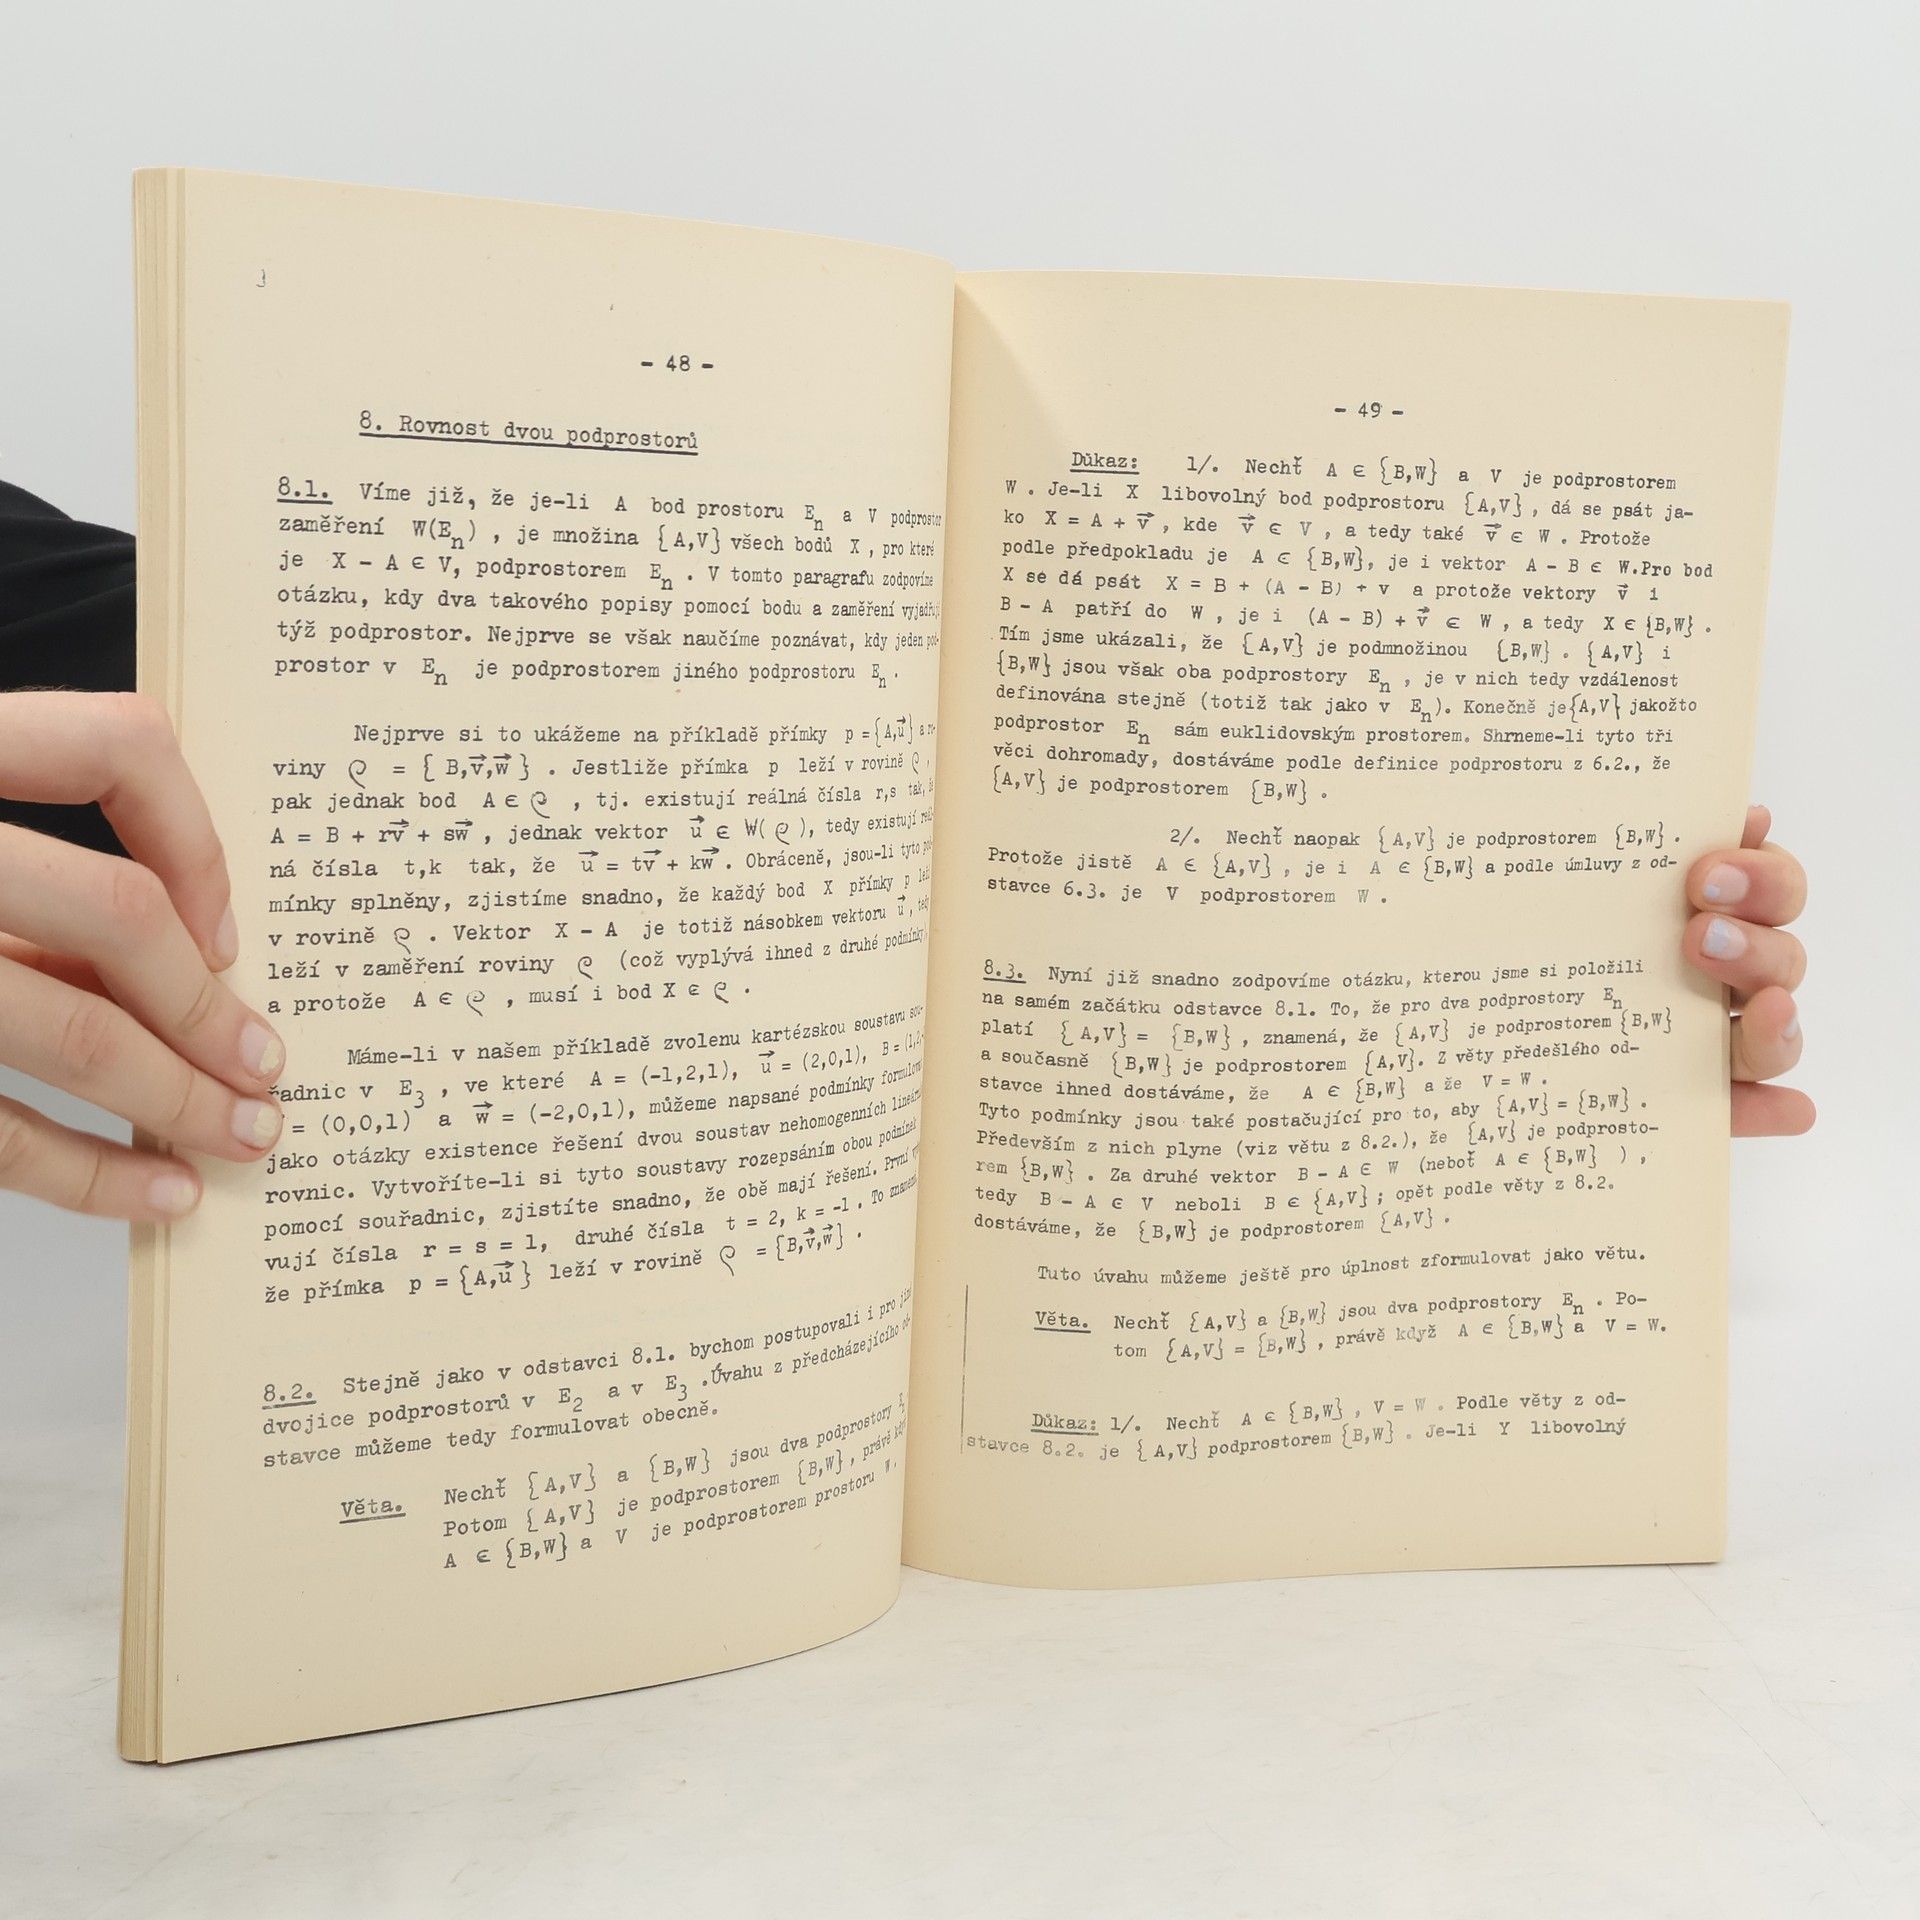 - 48 -
8. Rovnost dvou podprostorů
8.1. Víme již, že je-li A bod prostoru E_n a V podprostor
zaměření W(E_n) , je množina {A,V} všech bodů X , pro které
je X - A ∈ V, podprostorem E_n . V tomto paragrafu zodpovíme
otázku, kdy dva takového popisy pomocí bodu a zaměření
týž podprostor. Nejprve se však naučíme poznávat, kdy jeden
prostor v E_n je podprostorem jiného podprostoru E_n .
Nejprve si to ukážeme na příkladě přímky p = {A,u⃗} a ro-
viny ϱ = { B,v⃗,w⃗ } . Jestliže přímka p leží v rovině ϱ ,
pak jednak bod A ∈ ϱ , tj. existují reálná čísla r,s tak, že
A = B + rv⃗ + sw⃗ , jednak vektor u⃗ ∈ W( ϱ ), tedy existují
ná čísla t,k tak, že u⃗ = tv⃗ + kw⃗ . Obráceně, jsou-li tyto
mínky splněny, zjistíme snadno, že každý bod X přímky p leží
v rovině ϱ . Vektor X - A je totiž násobkem vektoru u⃗ , tedy
leží v zaměření roviny ϱ (což vyplývá ihned z druhé podmínky),
a protože A ∈ ϱ , musí i bod X ∈ ϱ .
Máme-li v našem příkladě zvolenu kartézskou soustavu sou-
řadnic v E_3 , ve které A = (-1,2,1), u⃗ = (2,0,1), B = (1,2,
= (0,0,1) a w⃗ = (-2,0,1), můžeme napsané podmínky
jako otázky existence řešení dvou soustav nehomogenních
rovnic. Vytvoříte-li si tyto soustavy rozepsáním obou podmínek
pomocí souřadnic, zjistíte snadno, že obě mají řešení. První
vují čísla r = s = 1, druhé čísla t = 2, k = -1 . To znamená,
že přímka p = {A,u⃗ } leží v rovině ϱ = {B,v⃗,w⃗} .
8.2. Stejně jako v odstavci 8.1. bychom postupovali i pro
dvojice podprostorů v E_2 a v E_3 .Úvahu z předcházejícího od-
stavce můžeme tedy formulovat obecně.
Věta. Nechť {A,V} a {B,W} jsou dva podprostory
Potom {A,V} je podprostorem {B,W}, právě když
A ∈ {B,W} a V je podprostorem prostoru W.
- 49 -
Důkaz: 1/. Nechť A ∈ {B,W} a V je podprostorem
W . Je-li X libovolný bod podprostoru {A,V} , dá se psát ja-
ko X = A + v⃗ , kde v⃗ ∈ V , a tedy také v⃗ ∈ W . Protože
podle předpokladu je A ∈ {B,W}, je i vektor A - B ∈ W.Pro bod
X se dá psát X = B + (A - B) + v a protože vektory v⃗ i
B - A patří do W , je i (A - B) + v⃗ ∈ W , a tedy X ∈ {B,W} .
Tím jsme ukázali, že {A,V} je podmnožinou {B,W} . {A,V} i
{B,W} jsou však oba podprostory E_n , je v nich tedy vzdálenost
definována stejně (totiž tak jako v E_n). Konečně je{A,V} jakožto
podprostor E_n sám euklidovským prostorem. Shrneme-li tyto tři
věci dohromady, dostáváme podle definice podprostoru z 6.2., že
{A,V} je podprostorem {B,W} .
2/. Nechť naopak {A,V} je podprostorem {B,W} .
Protože jistě A ∈ {A,V} , je i A ∈ {B,W} a podle úmluvy z od-
stavce 6.3. je V podprostorem W .
8.3. Nyní již snadno zodpovíme otázku, kterou jsme si položili
na samém začátku odstavce 8.1. To, že pro dva podprostory E_n
platí {A,V} = {B,W} , znamená, že {A,V} je podprostorem {B,W}
a současně {B,W} je podprostorem {A,V}. Z věty předešlého od-
stavce ihned dostáváme, že A ∈ {B,W} a že V = W .
Tyto podmínky jsou také postačující pro to, aby {A,V} = {B,W} .
Především z nich plyne (viz větu z 8.2.), že {A,V} je podprosto-
rem {B,W} . Za druhé vektor B - A ∈ W (neboť A ∈ {B,W} ) ,
tedy B - A ∈ V neboli B ∈ {A,V} ; opět podle věty z 8.2.
dostáváme, že {B,W} je podprostorem {A,V} .
Tuto úvahu můžeme ještě pro úplnost zformulovat jako větu.
Věta. Nechť {A,V} a {B,W} jsou dva podprostory E_n . Po-
tom {A,V} = {B,W} , právě když A ∈ {B,W} a V = W.
Důkaz: 1/. Nechť A ∈ {B,W} , V = W . Podle věty z od-
stavce 8.2. je {A,V} podprostorem {B,W} . Je-li Y libovolný